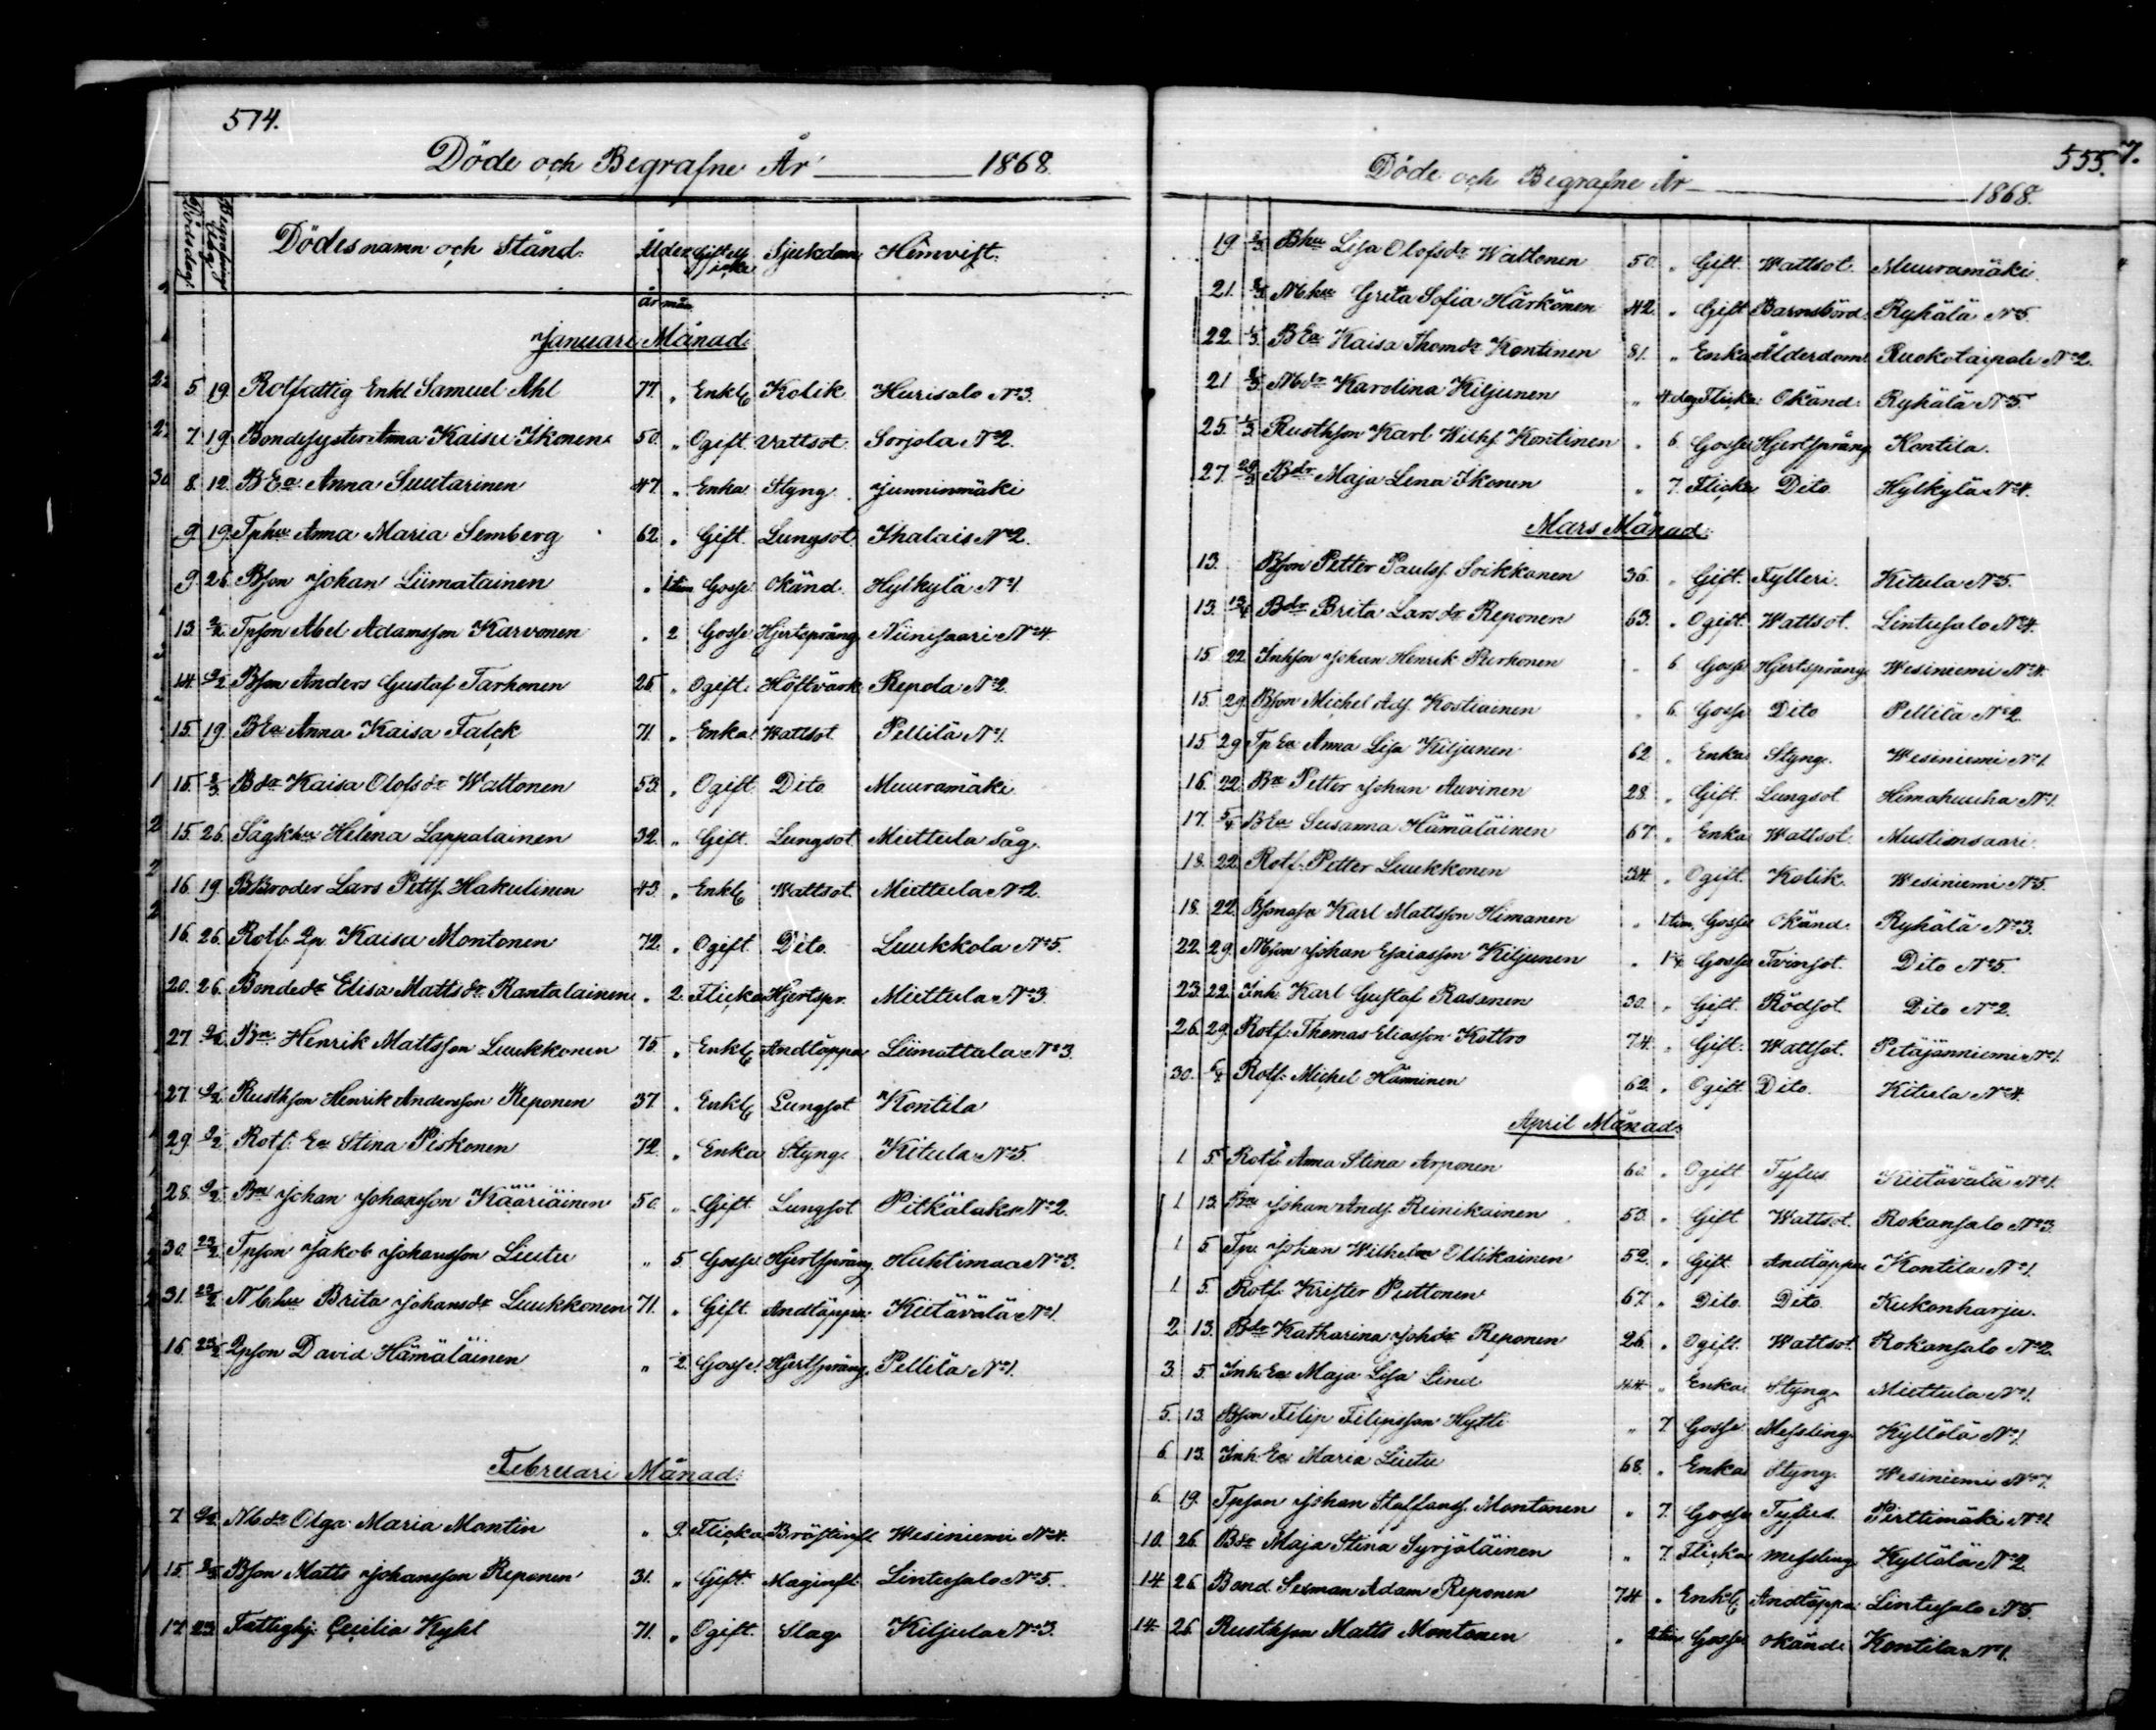 574.
Döde och Begrafne År 1868.
Dödsdag Begrafning dag Dödes namn och Stånd. Ålder Gift ell. ogift Sjukdom Hemvist.
år mån
Januari Månad.
5. 19. Rotfattig Enkl. Samuel Ahl 77. " Enkl. Kolik Hurisalo No 3.
7. 19. Bondesyster Anna Kaisa Ikonen 50. " Ogift. Vattsot. Sorjola No 2.
8. 12. BEa Anna Suutarinen 47. " Enka Styng. Junninmäki
9. 19. Tphu Anna Maria Semberg 62. " Gift. Lungsot. Ihalais No 2.
9. 26. Bson Johan Liimatainen " 1 tim Gosse Okänd. Hylkylä No 1.
13. 2/2. Tpson Abel Adamsson Karvonen " 2 Gosse Hjertsprång Niinisaari No 4.
14. 9/2 Bson Anders Gustaf Tarhonen 25. " Ogift. Höftvärk Repola No 2.
15. 19. BEa Anna Kaisa Falck 71. " Enka Wattsot. Pellilä No 1.
15. 2/3. Bdr Kaisa Olofsdr Wattonen 53. " Ogift. Dito Muuramäki
15. 26. Sågkhu Helena Lappalainen 32. " Gift. Lungsot Miettula Såg.
16. 19. BBroder Lars Pettf. Hakulinen 43. " Enkl. Wattsot. Miettula No 2.
16. 26. Rotf. Qp. Kaisa Montonen 72. " Ogift. Dito. Luukkola No 5.
20. 26. Bondedr Elisa Mattsdr Rantalainen " 2. Flicka Hjertspr. Miettula No 3.
27. 9/2. Bn Henrik Mattsson Luukkonen 75. " Enkl. Andtäppa Liimattala No 3.
27. 9/2. Rusthson Henrik Andersson Reponen 37. " Enkl. Lungsot Kontila
29. 9/2. Rotf. Ea Stina Piskonen 72. " Enka Styng. Kitula No 5.
28. 9/2. Bn Johan Johansson Kääriäinen 50. " Gift Lungsot Pitkälaks No 2.
30. 23/2. Tpson Jakob Johansson Liutu " 5. Gosse Hjertsprång. Huhtimaa No 3.
31. 23/2. Nbhu Brita Johansdr Luukkonen 71. " Gift Andtäppa. Kiitävälä No 1.
16. 23/2. Qpson David Hämäläinen " 2. Gosse Hjertsprång. Pellilä No 1.
Februari Månad.
7. 9/2. Nbdr Olga Maria Montin " 9. Flicka Bröstinfl. Wesiniemi No 4.
15. Bson Matts Johansson Reponen 31. " Gift. Maginfl. Lintusalo No 5.
17. 23. Fattighj. Cecilia Kyhl 71. " Ogift. Slag Kiljula No 3.
555.
7.
Döde och Begrafne År 1868.
19. 2/3. Bhu Lisa Olofsdr Wattonen 50. " Gift. Wattsot. Muuramäki.
21. Nbhu Greta Sofia Härkönen 42. " Gift Barnsbörd. Ryhälä No 5.
22. 1/3. BEa Kaisa Thomdr Kontinen 81. " Enka Ålderdom Ruokotaipale No 2.
21 Nbdr Karolina Kiljunen " 4 dag Flicka Okänd. Ryhälä No 5.
25. 1/3. Rusthson Karl Wilhf. Kontinen " 6 Gosse Hjertsprång Kontila.
27. 29/3 Bdr Maja Lena Ikonen " 7. Flicka Dito Hylkylä No 4.
Mars Månad.
13. Bson Petter Paulsf. Soikkanen 36. " Gift. Fylleri. Kitula No 5.
13. 13/4 Bdr Brita Larsdr Reponen 63. " Ogift. Wattsot. Lintusalo No 4.
15. 22. Inhson Johan Henrik Purhonen " 6 Gosse Hjertsprång. Wesiniemi No 4.
15. 29. Bson Michel Adf. Kostiainen " 6. Gosse Dito Pellilä No 2.
15. 29. TpEa Anna Lisa Kiljunen 62. " Enka Styng. Wesiniemi No 1.
16. 22. Bn Petter Johan Auvinen 28. " Gift. Lungsot Himahuuha No 1.
17. 5/4 BEa Susanna Hämäläinen 67. " Enka Wattsot. Mustinsaari.
18. 22. Rotf. Petter Luukkonen 34. " Ogift. Kolik. Wesiniemi No 5.
18. 22. Karl Mattsson Himanen " 1 tim. Gosse Okänd. Ryhälä No 3.
22. 29. Mson Johan Esaiasson Kiljunen " Gosse Tvinsot. Dito No 5.
23. 22. Inh. Karl Gustaf Rasanen 30. " Gift. Rödsot Dito No 2.
26. 29. Rotf. Thomas Eliasson Kottro 74. " Gift. Wattsot. Petäjänniemi No 1.
30. 6/4 Rotf. Michel Häminen 62. " Ogift Dito. Kitula No 4.
April Månad.
1. 5. Rotf. Anna Stina Arponen 60. " Ogift Tyfus. Kiitävälä No 1.
1 13. Bn Johan Andf. Reinikainen 53. " Gift Wattsot. Rokansalo No 3.
1 5. Tp. Johan Wilhelm Ollikainen 52. " Gift Andtäppa Kontila No 1.
1 5. Rotf. Krister Puttonen 67. " Dito Dito. Kukonharju.
2. 13. Bdr Katharina Johdr Reponen 26. " Ogift. Wattsot. Rokansalo No 2.
3. 5. Inh. Ea Maja Lisa Lind 44. " Enka Styng Miettula No 1.
5. 13. Bson Filip Filipsson Hytti " 7 Gosse Messling. Kyllälä No 1.
6 13. Inh. Ea Maria Liutu 68. " Enka Styng Wesiniemi No 7.
6. 19. Tpson Johan Staffansf. Montonen " 7. Gosse Tyfus. Pirttimäki No 1.
10. 26. Bdr Maja Stina Syrjäläinen " 7. Flicka Messling Kyllälä No 2.
14 26. Bond. Sexman Adam Reponen 74. " Enkl. Andtäppa Lintusalo No 5.
14. 26. Rusthson Matts Montonen " 2 tim Gosse okänd. Kontila No 1.